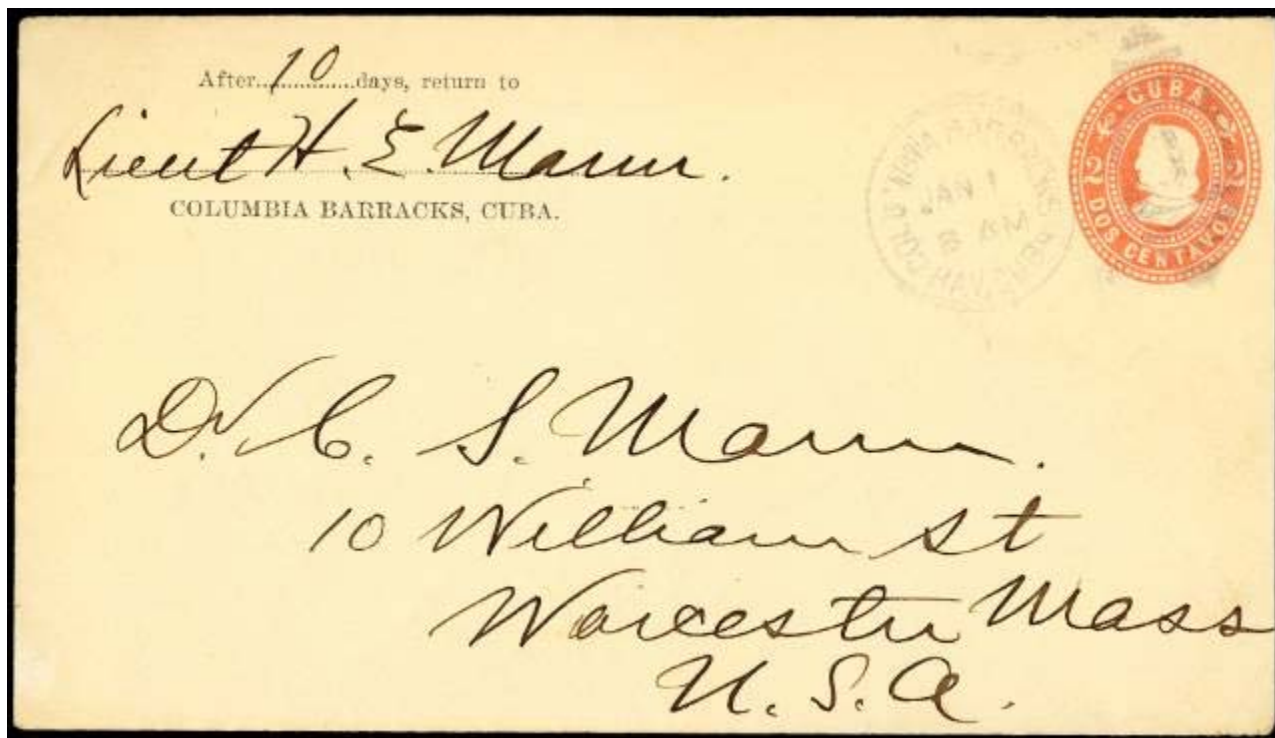 After 10 days, return to
Lieut H. E. Mann.
COLUMBIA BARRACKS, CUBA.
JAN 1
CUBA
2 2
DOS CENTAVOS
Dr. C. S. Mann.
10 William st
Worcester Mass
U. S. A.